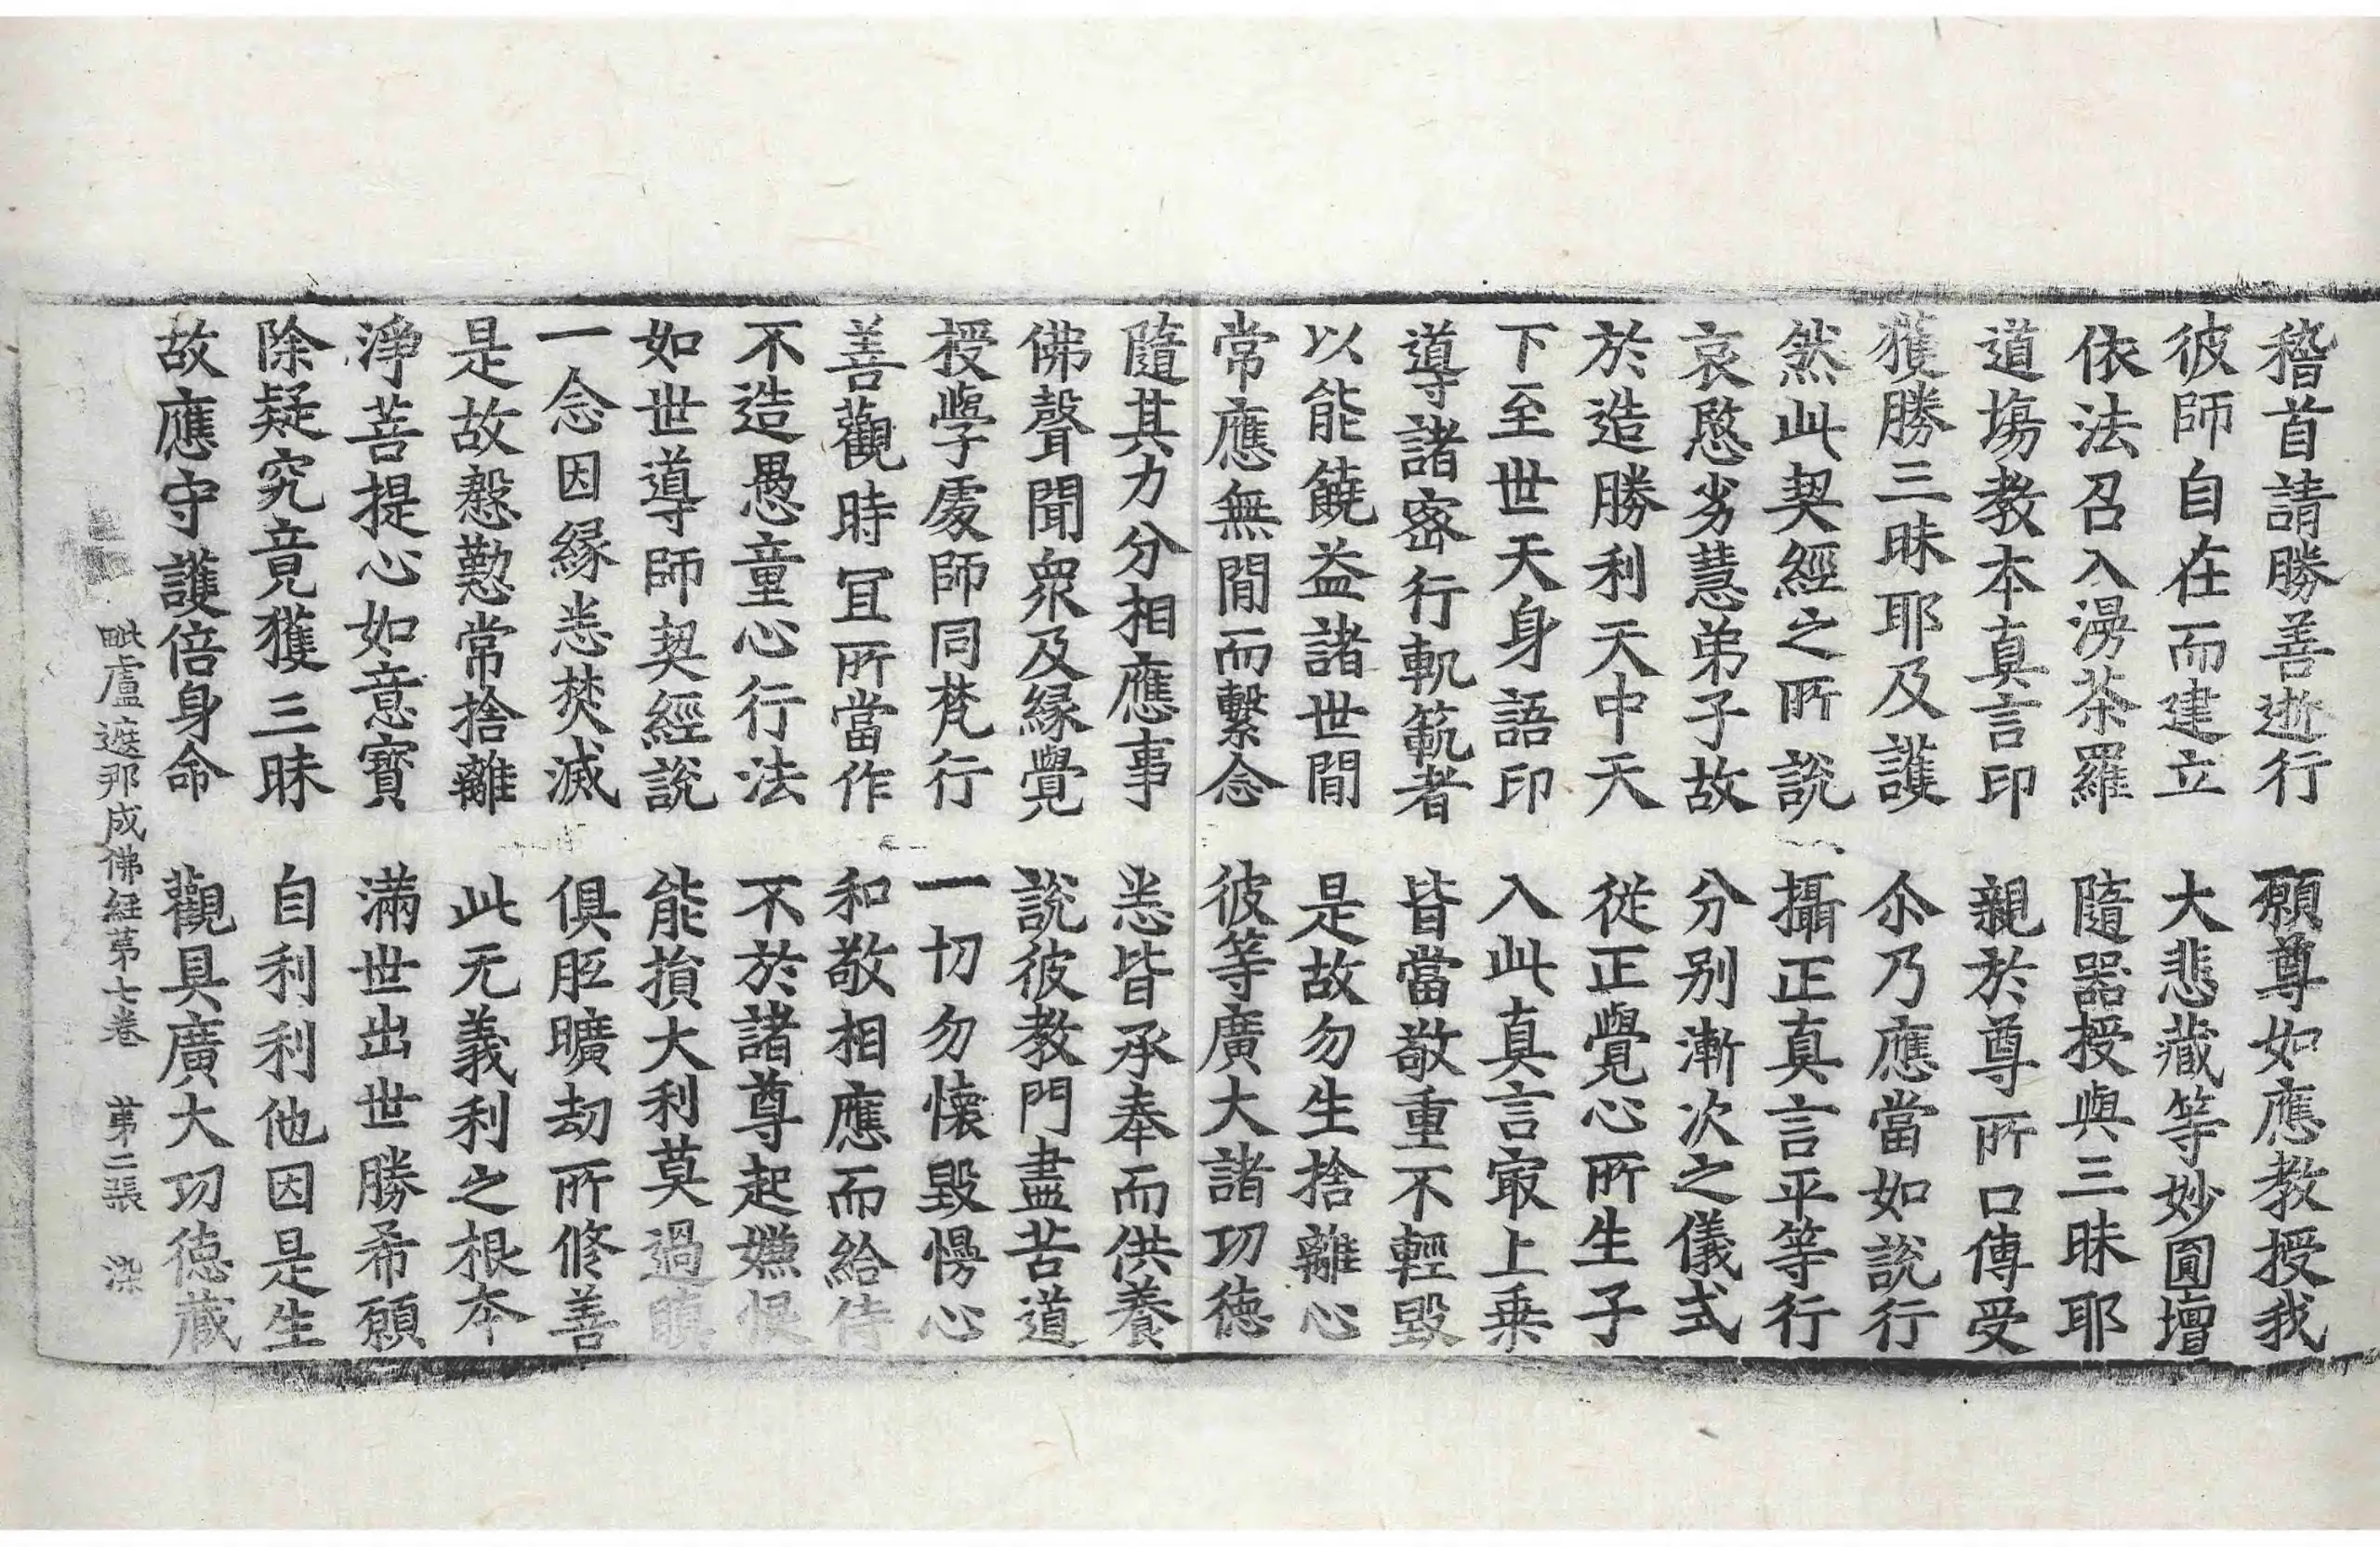 稽首請勝善逝行　願尊如應教授我
彼師自在而建立　大悲藏等妙圓壇
依法召入漫茶羅　隨器授與三昧耶
道場教本真言印　親於尊所口傳受
獲勝三昧耶及護　尒乃應當如說行
然此契經之所說　攝正真言平等行
哀愍劣慧弟子故　分別漸次之儀式
於造勝利天中天　從正覺心所生子
下至世天身語印　入此真言冣上乗
導諸密行軌範者　皆當敬重不輕毀
以能饒益諸世間　是故勿生捨離心
常應無間而繫念　彼等廣大諸功德
隨其力分相應事　悉皆承奉而供養
佛聲聞衆及緣覺　說彼教門盡苦道
授學處師同梵行　一切勿懷毀慢心
善觀時宜所當作　和敬相應而給侍
不造愚童心行法　不於諸尊起嫌恨
如世導師契經說　能損大利莫過瞋
一念因緣悉焚滅　俱胝曠劫所修善
是故慇懃常捨離　此无義利之根本
淨菩提心如意寶　滿世出世勝希願
除疑究竟獲三昧　自利利他因是生
故應守護倍身命　觀具廣大功德藏
毗盧遮那成佛經第七卷　第二張　染